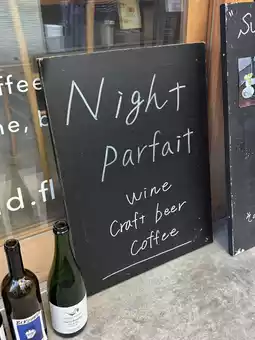 Night
Parfait
wine
Craft beer
Coffee
ffee
ne, b
d.fl
"Su